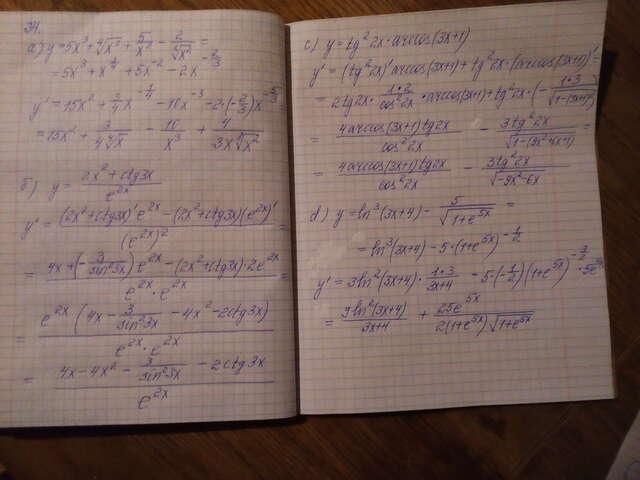 34.
а) y = 5x³ + ⁴√x³ + 5/x² − 2/∛x² =
= 5x³ + x^(3/4) + 5x⁻² − 2x^(−2/3)
y' = 15x² + 3/4 x^(−1/4) − 10x⁻³ − 2·(−2/3)x^(−5/3) =
= 15x² + 3/(4 ⁴√x) − 10/x³ + 4/(3x ∛x²)
б) y = (2x² + ctg3x)/e^(2x)
y' = ((2x² + ctg3x)' e^(2x) − (2x² + ctg3x)(e^(2x))')/(e^(2x))² =
= ((4x + (− 3/sin²3x)) e^(2x) − (2x² + ctg3x)·2e^(2x))/(e^(2x)·e^(2x)) =
= e^(2x)(4x − 3/sin²3x − 4x² − 2ctg3x)/(e^(2x)·e^(2x)) =
= (4x − 4x² − 3/sin²3x − 2ctg3x)/e^(2x)
c) y = tg²2x · arccos(3x+1)
y' = (tg²2x)' arccos(3x+1) + tg²2x · (arccos(3x+1))' =
= 2tg2x · (1·2)/cos²2x · arccos(3x+1) + tg²2x · (− (1·3)/√(1−(3x+1)²)) =
= 4arccos(3x+1)tg2x/cos²2x − 3tg²2x/√(1−(9x²+6x+1)) =
= 4arccos(3x+1)tg2x/cos²2x − 3tg²2x/√(−9x²−6x)
d) y = ln³(3x+4) − 5/√(1+e^(5x)) =
= ln³(3x+4) − 5·(1+e^(5x))^(−1/2)
y' = 3ln²(3x+4) · (1·3)/(3x+4) − 5·(−1/2)(1+e^(5x))^(−3/2) · 5e^(5x) =
= 9ln²(3x+4)/(3x+4) + 25e^(5x)/(2(1+e^(5x))√(1+e^(5x)))